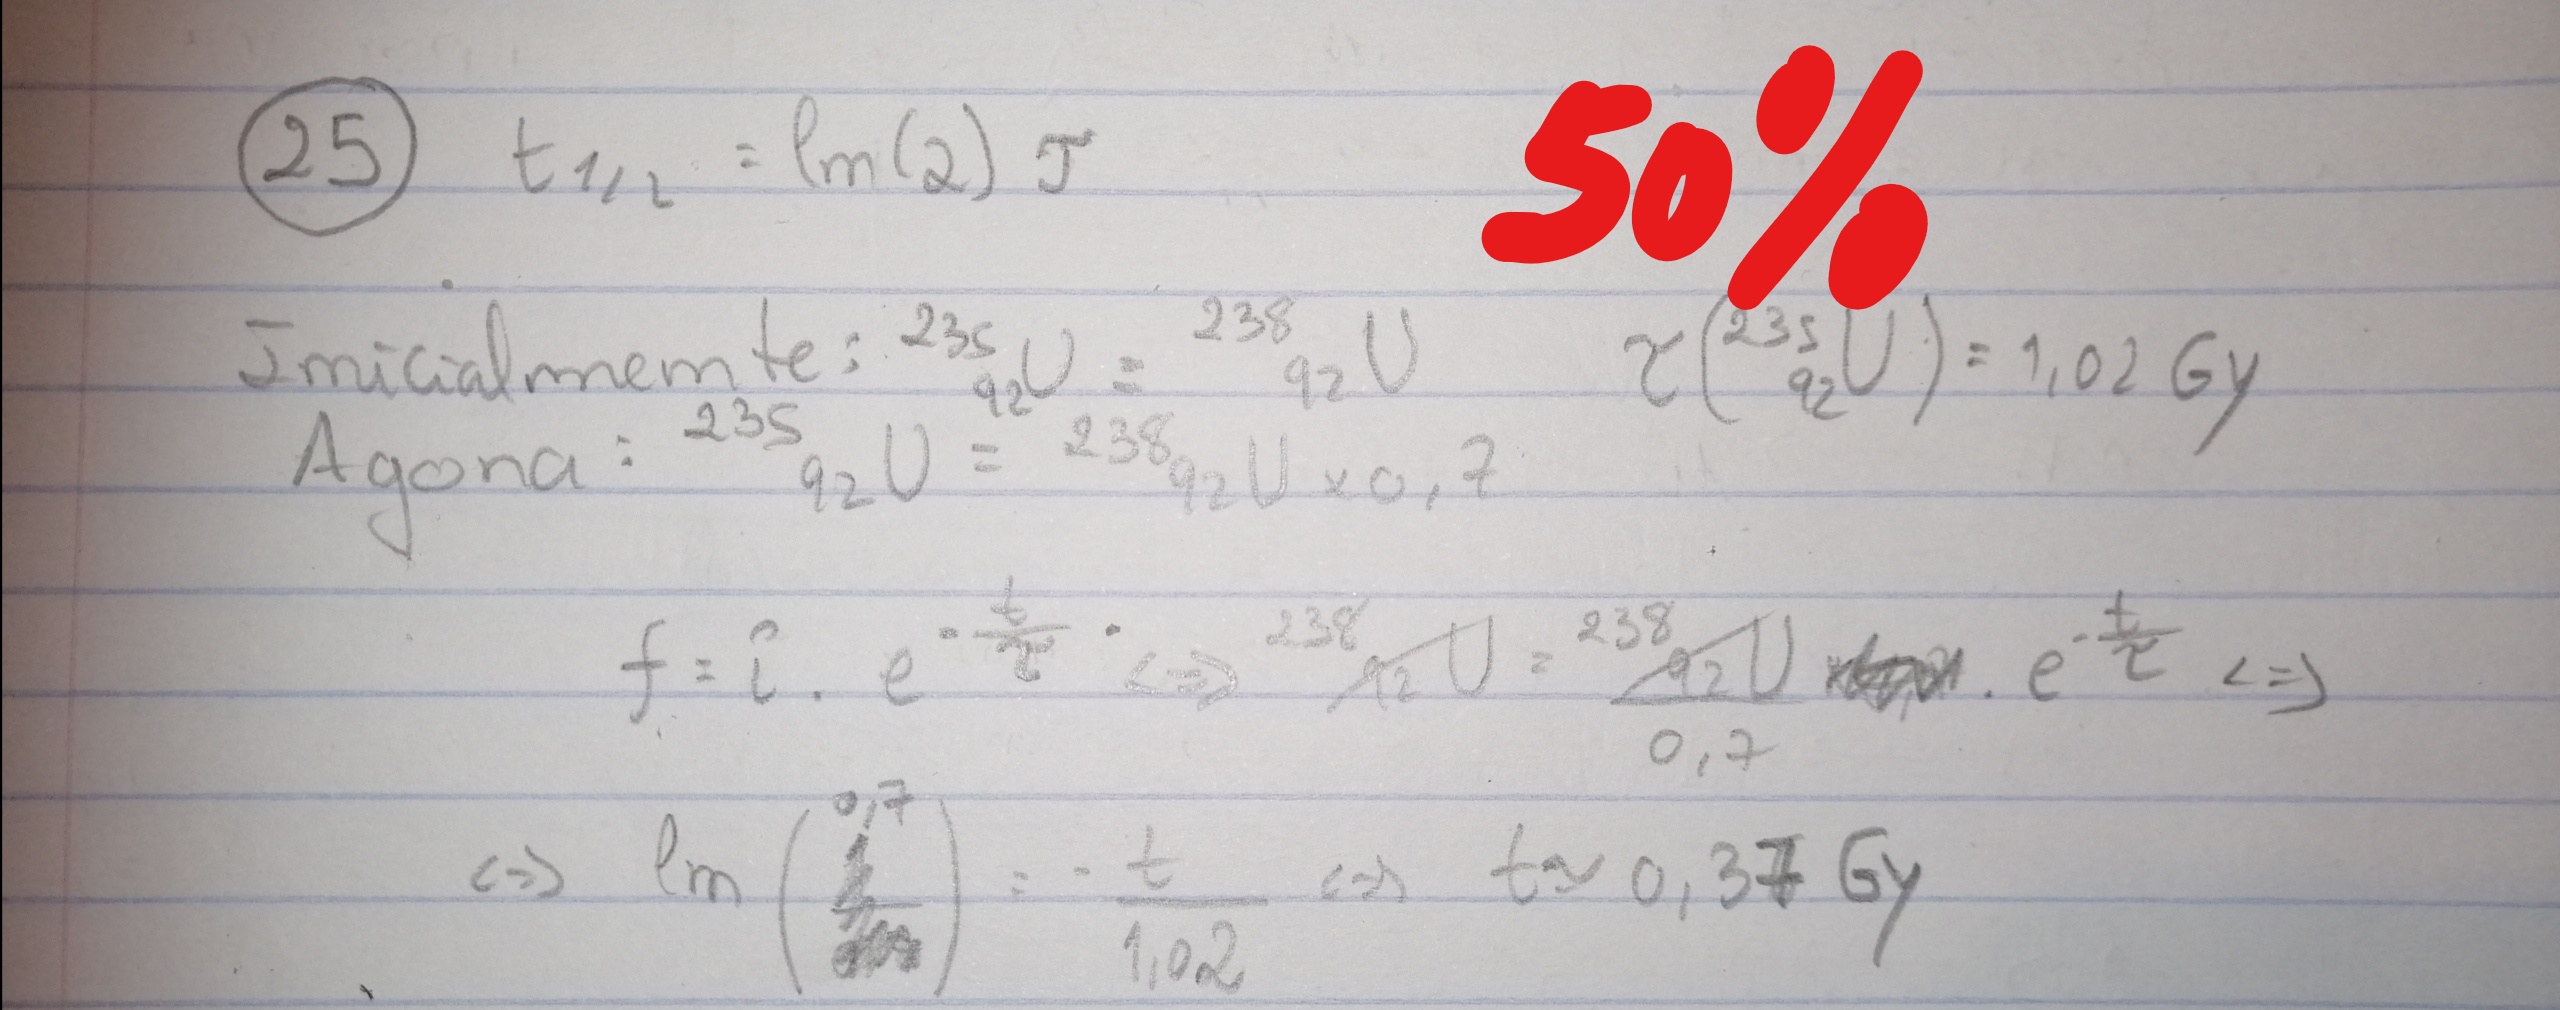 25 t 1/2 = ln(2) τ 50%
Inicialmente: 235 92 U = 238 92 U τ(235 92 U) = 1,02 Gy
Agora: 235 92 U = 238 92 U x 0,7
f = i . e^-t/τ <=> 238 92 U = 238 92 U / 0,7 . e^-t/τ <=>
<=> ln(0,7) = - t / 1,02 <=> t ≈ 0,37 Gy